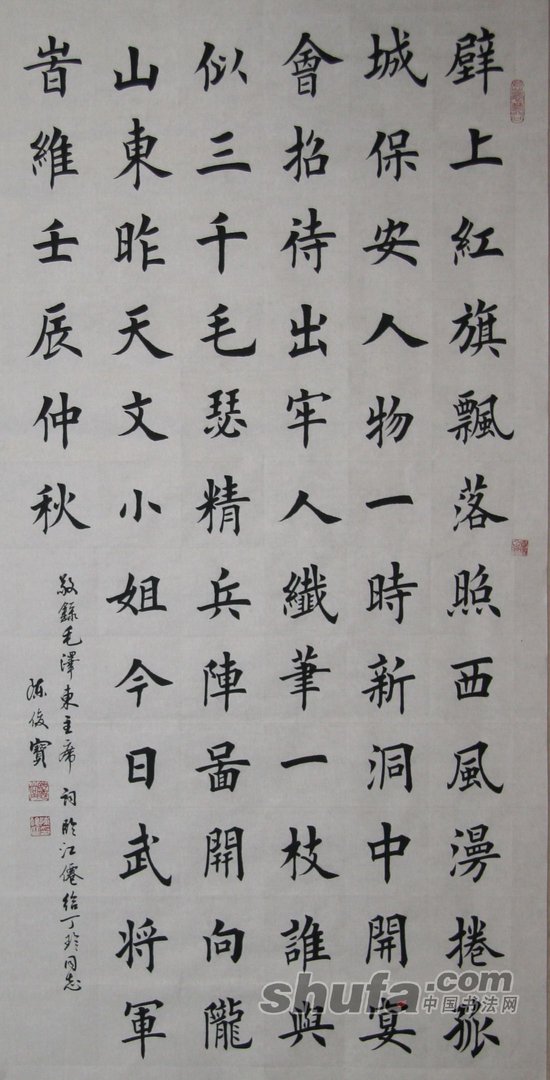 壁上紅旗飄落照西風漫捲孤
城保安人物一時新洞中開宴
會招待出牢人纖筆一枝誰與
似三千毛瑟精兵陣啚開向隴
山東昨天文小姐今日武将軍
旹維壬辰仲秋
敬錄毛澤東主席詞臨江僊給丁玲同志
陳俊寶
shufa.com
中国书法网